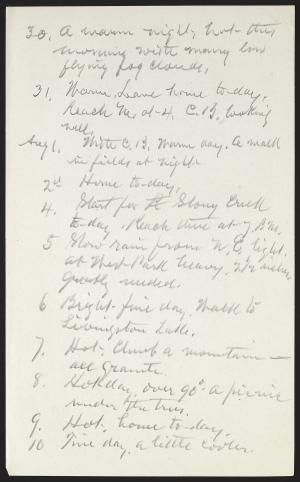 30. A warm night, hot this
morning with many low
flying fog clouds,
31. Warm, Leave home to-day,
Reach M, at 4, C.B. looking
well,
Aug 1. With C.B. Warm day. A walk
in fields at night
2d Home to-day,
4. Start for Stony Creek
to-day, Reach there at 7 P.M.
5 Slow rain from N.E. light.
at West Park heavy, 2½ inches
Greatly needed.
6 Bright fine day, Walk to
Livingston Lake.
7. Hot, Climb a mountain —
all granite
8. Hot day, over 90° a picnic
under the trees.
9. Hot, home to-day.
10 Fine day, a little cooler.